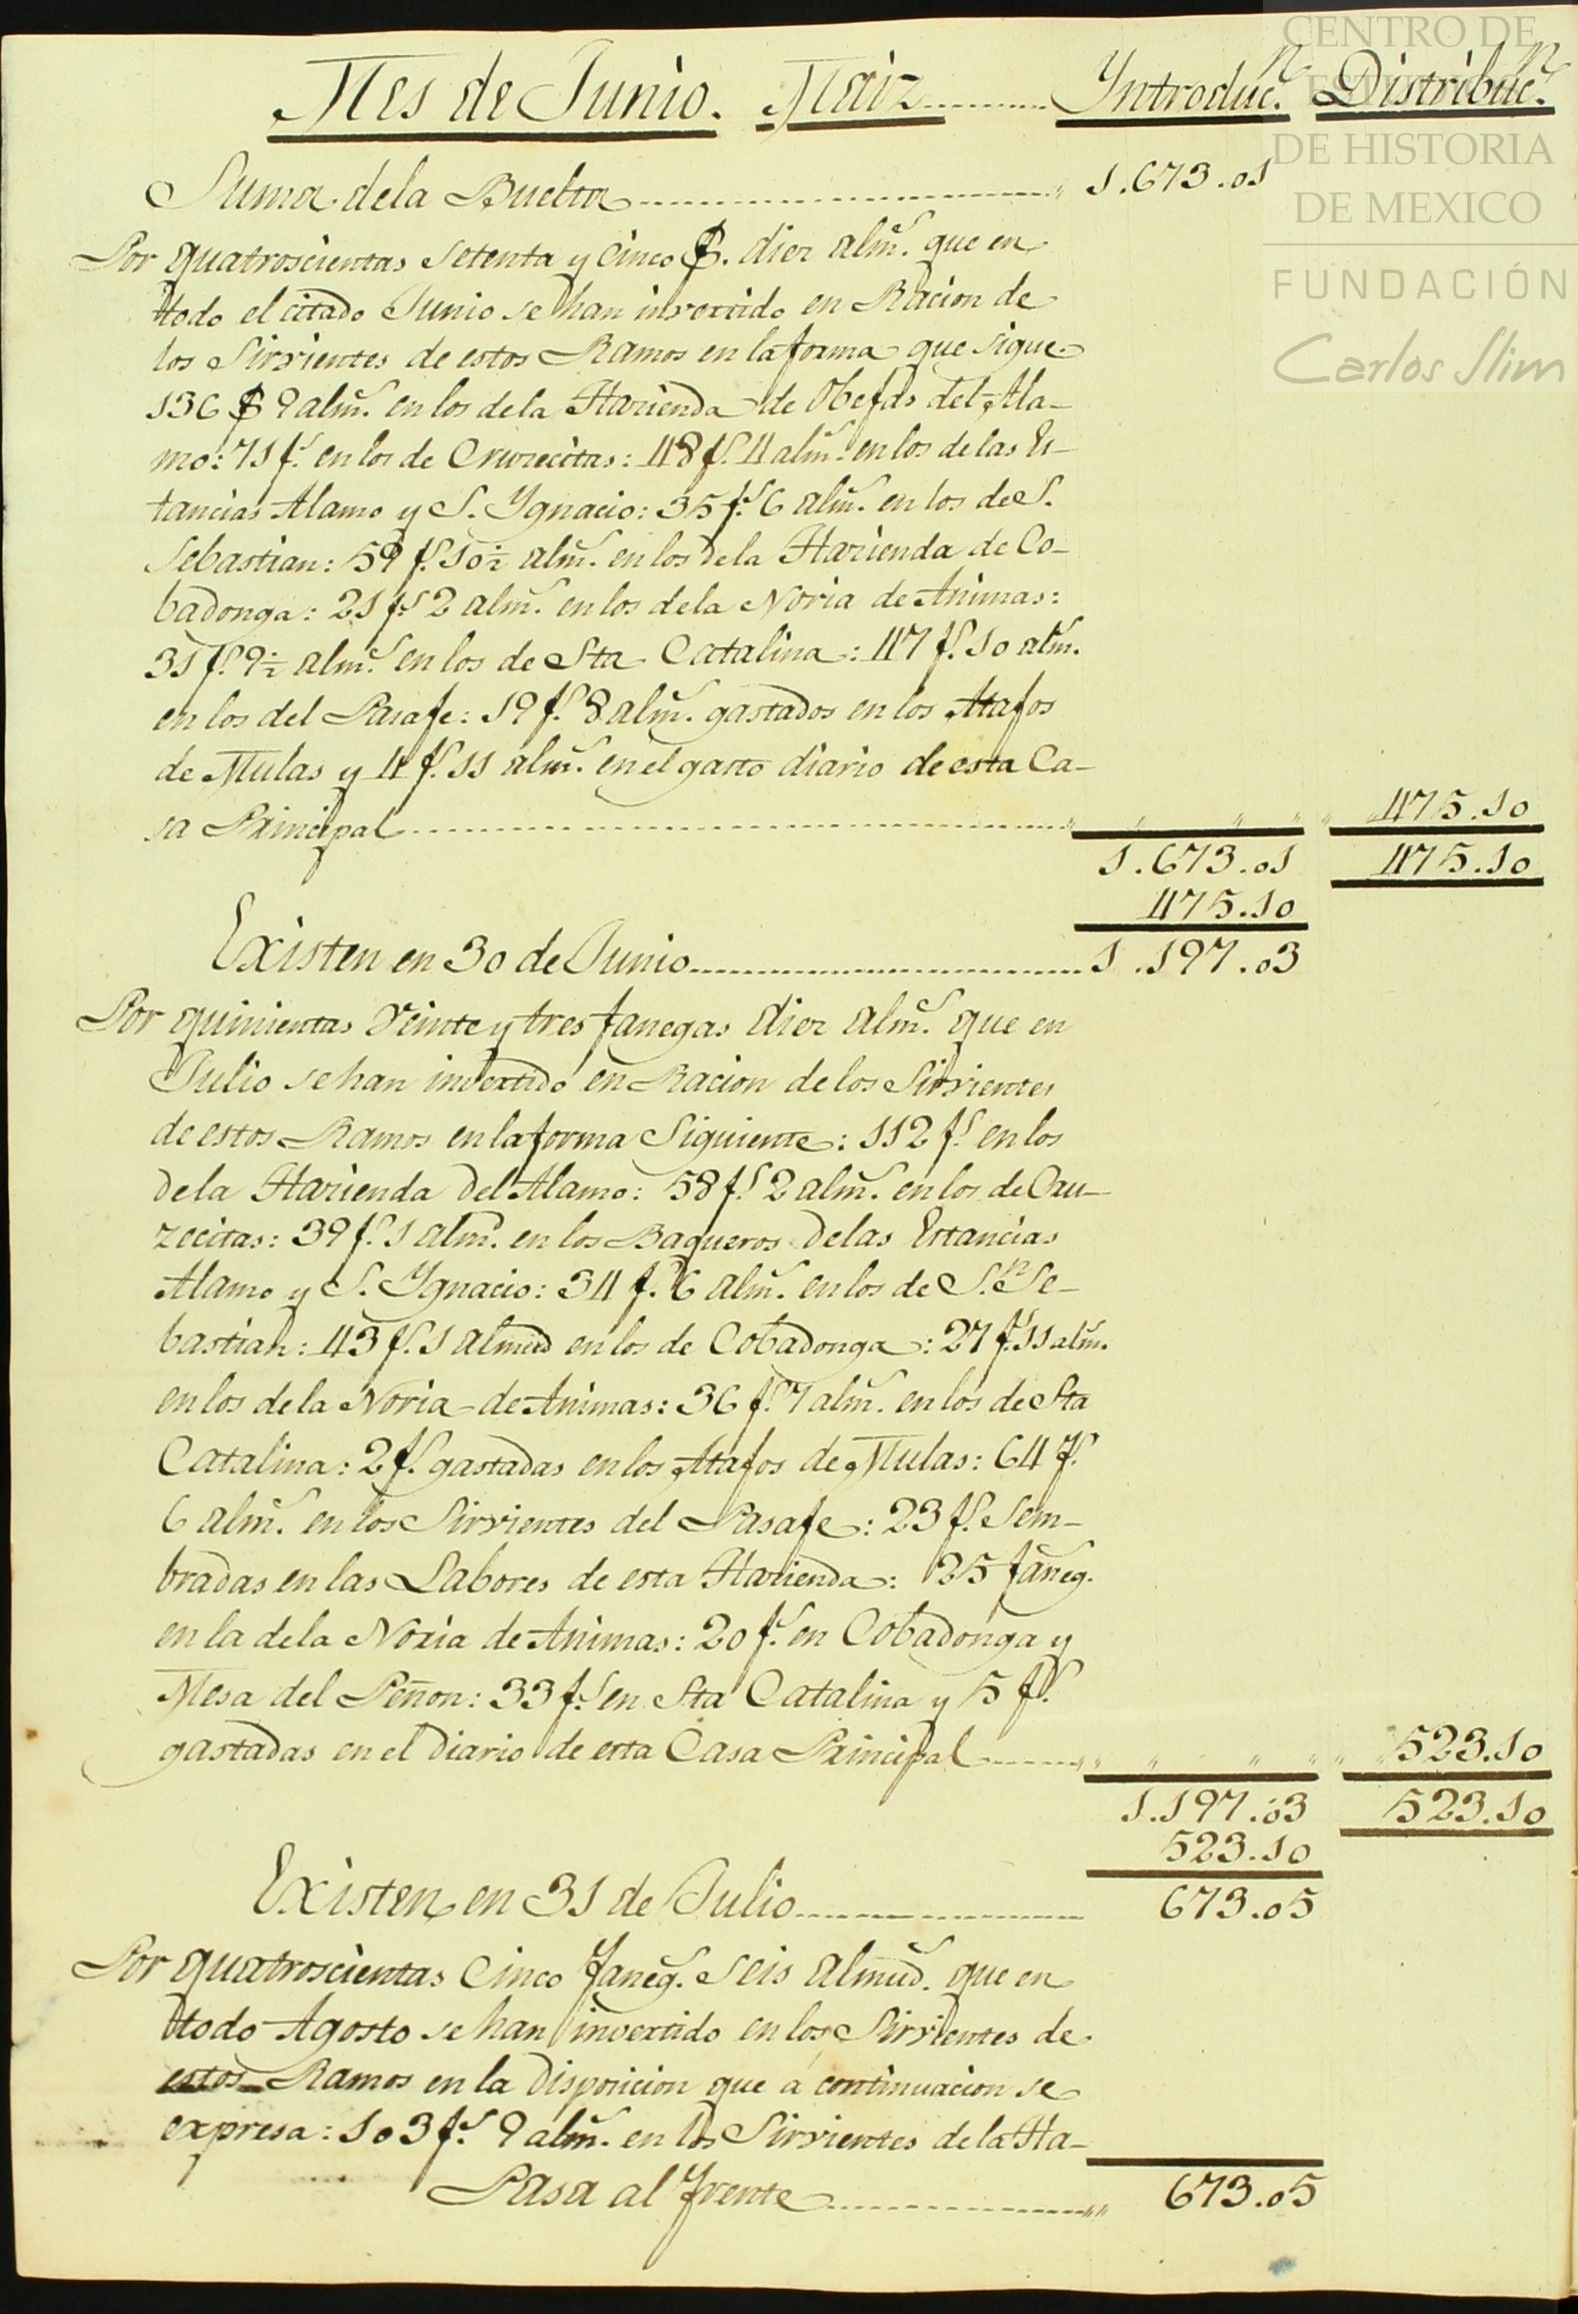 Mes de Junio. Maiz Introduc.n Distribuc.n
Suma dela Buelta 1.673.01
Por quatroscientas setenta y cinco f.s diez alm.s que en
todo el citado Junio se han invertido en Racion de
los Sirvientes de estos Ramos en la forma que sigue
136 f.s 9 alm.s en los dela Hazienda de Obejas del Ala-
mo: 71 f.s en los de Cruzecitas: 48 f.s 4 alm.s en los de las Es-
tancias Alamo y S. Ygnacio: 35 f.s 6 alm.s en los de S.
Sebastian: 59 f.s 10½ alm.s en los dela Hazienda de Co-
badonga: 21 f.s 2 alm.s en los dela Noria de Animas:
31 f.s 9½ alm.s en los de Sta Catalina: 47 f.s 10 alm.s
en los del Pasaje: 19 f.s 8 alm.s gastados en los Atajos
de Mulas y 4 f.s 11 alm.s en el gasto diario de esta Ca-
sa Principal 475.10
1.673.01 475.10
475.10
Existen en 30 de Junio 1.197.03
Por quinientas veinte y tres fanegas diez alm.s que en
Julio se han invertido en Racion de los Sirvientes
de estos Ramos en la forma Siguiente: 112 f.s en los
dela Hazienda del Alamo: 58 f.s 2 alm.s en los de Cru-
zecitas: 39 f.s 1 alm. en los Baqueros delas Estancias
Alamo y S. Ygnacio: 34 f.s 6 alm.s en los de S.n Se-
bastian: 43 f.s 1 almud en los de Cobadonga: 27 f.s 11 alm.s
en los dela Noria de Animas: 36 f.s 7 alm.s en los de Sta
Catalina: 2 f.s gastadas en los Atajos de Mulas: 64 f.s
6 alm.s en los Sirvientes del Pasaje: 23 f.s Sem-
bradas en las Labores de esta Hazienda: 25 faneg.s
en la dela Noria de Animas: 20 f.s en Cobadonga y
Mesa del Peñon: 33 f.s en Sta Catalina y 5 f.s
gastadas en el diario de esta Casa Principal 523.10
1.197.03 523.10
523.10
Existen en 31 de Julio 673.05
Por quatroscientas Cinco Faneg.s seis almud.s que en
todo Agosto se han invertido en los Sirvientes de
estos Ramos en la disposicion que á continuacion se
expresa: 103 f.s 9 alm.s en los Sirvientes de la Ha-
Pasa al Frente 673.05
CENTRO DE
ESTUDIOS
DE HISTORIA
DE MEXICO
FUNDACIÓN
Carlos Slim